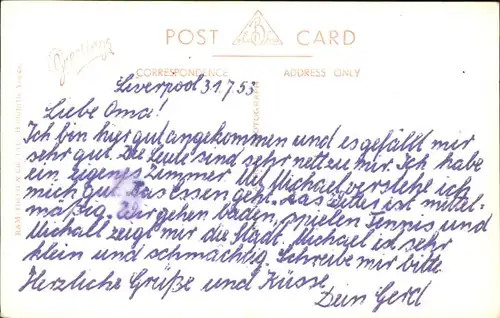 Greetings
POST CARD
CORRESPONDENCE ADDRESS ONLY
Liverpool 31.7.53
Liebe Oma!
Ich bin hier gut angekommen und es gefällt mir
sehr gut. Die Leute sind sehr nett zu mir. Ich habe
ein eigenes Zimmer. Mit Michael verstehe ich
mich gut. Das Essen geht. Das Wetter ist mittel-
mäßig. Wir gehen baden, spielen Tennis und
Michael zeigt mir die Stadt. Michael ist sehr
klein und schmächtig. Schreibe mir bitte
Herzliche Grüße und Küsse
Dein Gerd